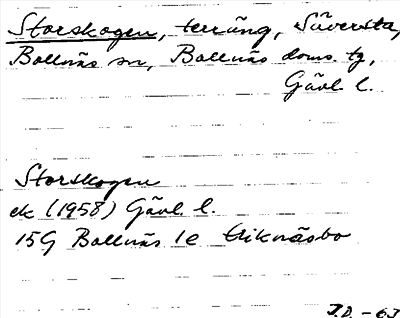 Storskogen, terräng, Säversta,
Bollnäs sn, Bollnäs doms. tg,
Gävl. l.
Storskogen
ek (1958) Gävl. l.
15G Bollnäs 1e Växnäsbo
J.D. -63